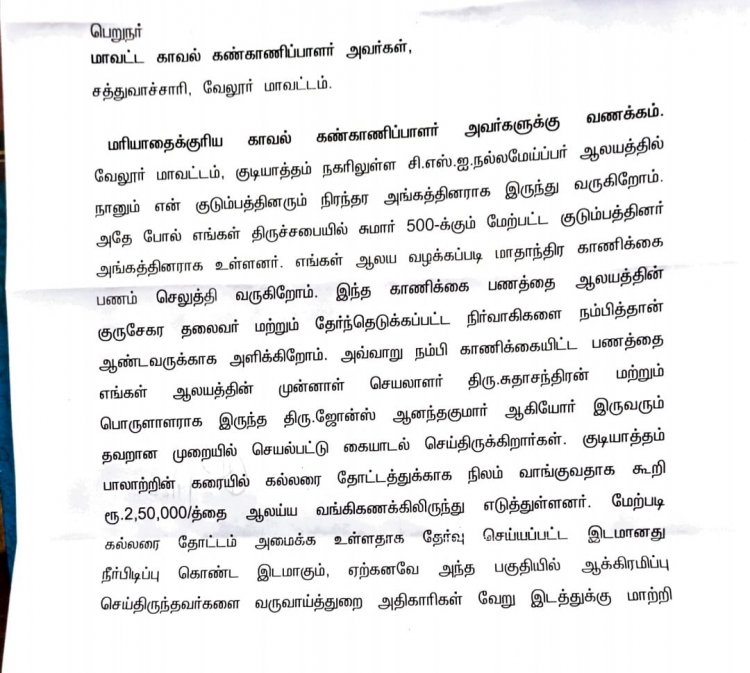 பெறுநர்
மாவட்ட காவல் கண்காணிப்பாளர் அவர்கள்,
சத்துவாச்சாரி, வேலூர் மாவட்டம்.
மரியாதைக்குரிய காவல் கண்காணிப்பாளர் அவர்களுக்கு வணக்கம்.
வேலூர் மாவட்டம், குடியாத்தம் நகரிலுள்ள சி.எஸ்.ஐ.நல்லமேய்ப்பர் ஆலயத்தில்
நானும் என் குடும்பத்தினரும் நிரந்தர அங்கத்தினராக இருந்து வருகிறோம்.
அதே போல் எங்கள் திருச்சபையில் சுமார் 500-க்கும் மேற்பட்ட குடும்பத்தினர்
அங்கத்தினராக உள்ளனர். எங்கள் ஆலய வழக்கப்படி மாதாந்திர காணிக்கை
பணம் செலுத்தி வருகிறோம். இந்த காணிக்கை பணத்தை ஆலயத்தின்
குருசேகர தலைவர் மற்றும் தேர்ந்தெடுக்கப்பட்ட நிர்வாகிகளை நம்பித்தான்
ஆண்டவருக்காக அளிக்கிறோம். அவ்வாறு நம்பி காணிக்கையிட்ட பணத்தை
எங்கள் ஆலயத்தின் முன்னாள் செயலாளர் திரு.சுதாசந்திரன் மற்றும்
பொருளாளராக இருந்த திரு.ஜோன்ஸ் ஆனந்தகுமார் ஆகியோர் இருவரும்
தவறான முறையில் செயல்பட்டு கையாடல் செய்திருக்கிறார்கள். குடியாத்தம்
பாலாற்றின் கரையில் கல்லரை தோட்டத்துக்காக நிலம் வாங்குவதாக கூறி
ரூ.2,50,000/த்தை ஆலய்ய வங்கிகணக்கிலிருந்து எடுத்துள்ளனர். மேற்படி
கல்லரை தோட்டம் அமைக்க உள்ளதாக தேர்வு செய்யப்பட்ட இடமானது
நீர்பிடிப்பு கொண்ட இடமாகும், ஏற்கனவே அந்த பகுதியில் ஆக்கிரமிப்பு
செய்திருந்தவர்களை வருவாய்த்துறை அதிகாரிகள் வேறு இடத்துக்கு மாற்றி